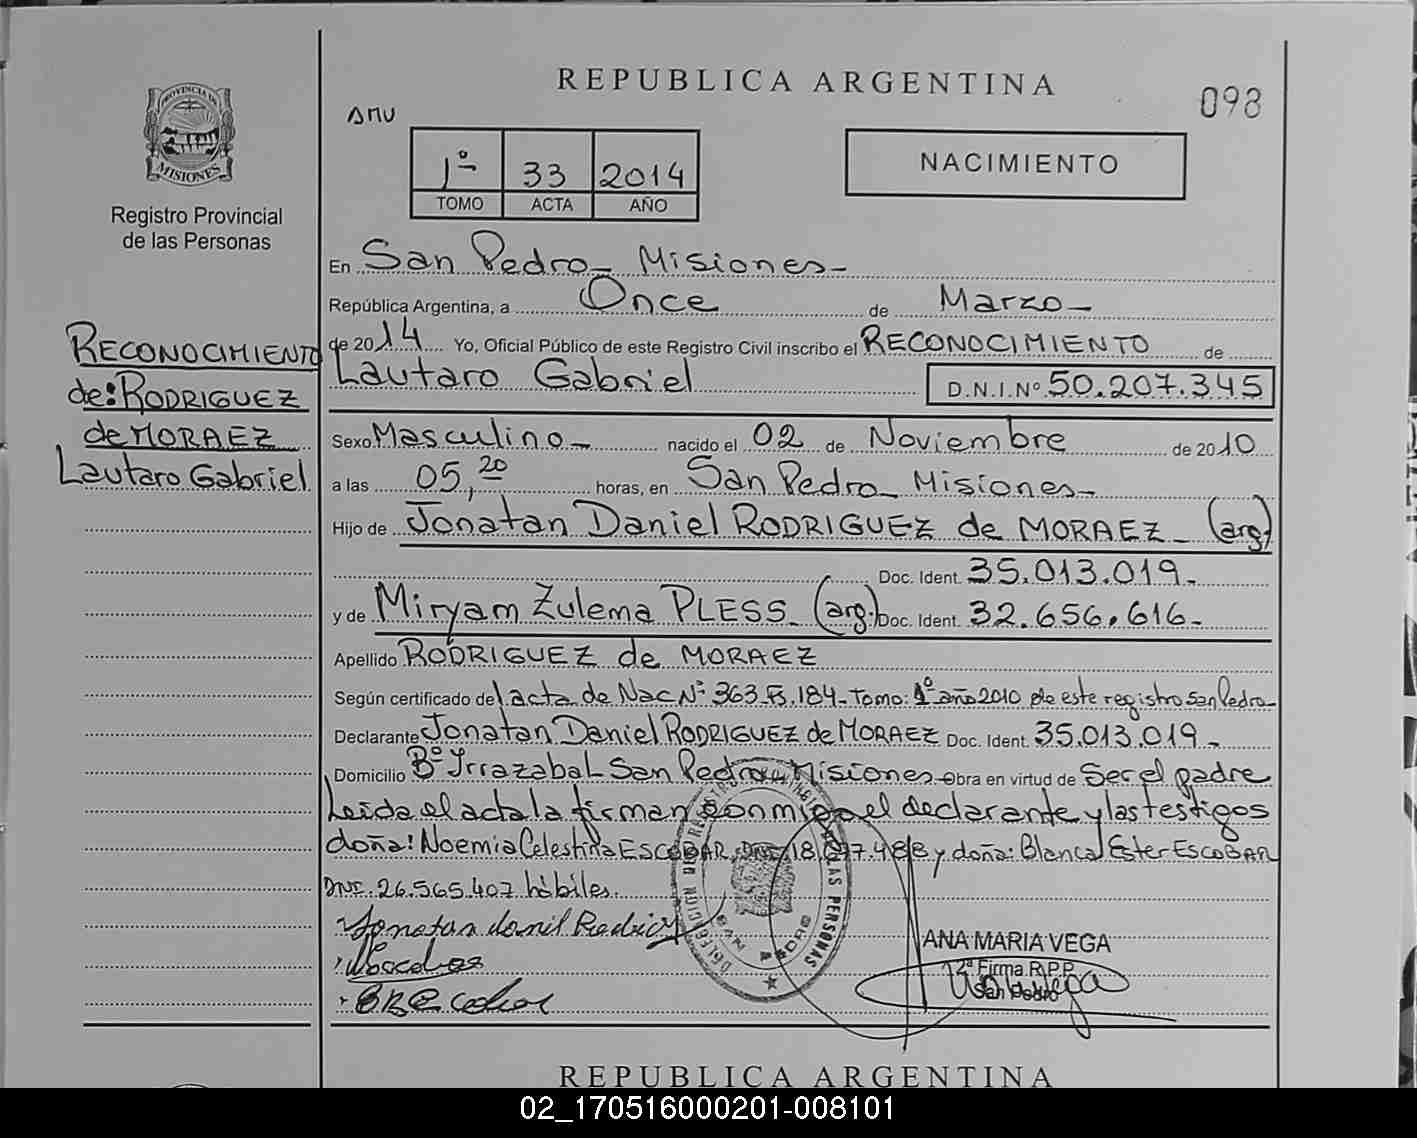 REPUBLICA ARGENTINA
098
AMU
1º 33 2014
TOMO ACTA AÑO
NACIMIENTO
PROVINCIA DE
MISIONES
Registro Provincial
de las Personas
RECONOCIMIENTO
de: RODRIGUEZ
de MORAEZ
Lautaro Gabriel
En San Pedro - Misiones -
República Argentina, a Once de Marzo -
de 2014 Yo, Oficial Público de este Registro Civil inscribo el RECONOCIMIENTO de
Lautaro Gabriel D.N.I.Nº 50.207.345
Sexo Masculino - nacido el 02 de Noviembre de 2010
a las 05,20 horas, en San Pedro - Misiones -
Hijo de Jonatan Daniel RODRIGUEZ de MORAEZ - (arg)
Doc. Ident. 35.013.019 -
y de Miryam Zulema PLESS - (arg.) Doc. Ident. 32.656.616 -
Apellido RODRIGUEZ de MORAEZ
Según certificado del acta de Nac Nº 363 - Fs. 184 - Tomo: 1º año 2010 de este registro San Pedro -
Declarante Jonatan Daniel RODRIGUEZ de MORAEZ Doc. Ident. 35.013.019 -
Domicilio Bº Irrazabal San Pedro - Misiones - Obra en virtud de Ser el padre
Leida el acta la firman conmigo el declarante y las testigos
doña: Noemia Celestina ESCOBAR, DNI. y doña: Blanca Ester ESCOBAR
DNI. 26.565.407 hábiles.
Jonatan
DELEGACION DE REGISTRO LAS PERSONAS
SAN PEDRO
ANA MARIA VEGA
2ª Firma R.P.P.
San Pedro
REPUBLICA ARGENTINA
02_170516000201-008101